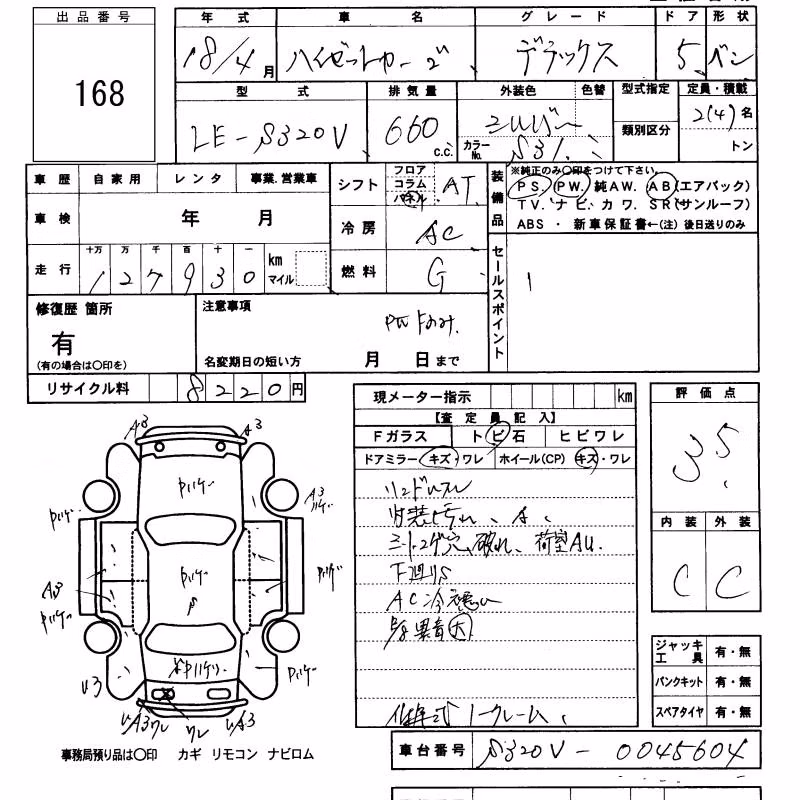 出品番号
168
年式 車名 グレード ドア 形状
18/4月 ハイゼットカーゴ デラックス 5 バン
型式 排気量 外装色 色替 型式指定 定員・積載
LE-S320V 660 c.c. シルバー カラーNo. S31 類別区分 2(4)名
トン
車歴 自家用 レンタ 事業.営業車
車検 年 月
走行 十万 万 千 百 十 一 km マイル
127930
シフト フロア コラム パネル AT
冷房 AC
燃料 G
装備品
※純正のみ〇印をつけて下さい。
PS. PW. 純AW. AB(エアバック)
TV. ナビ. カワ. SR(サンルーフ)
ABS ・ 新車保証書←(注) 後日送りのみ
セールスポイント
修復歴 箇所
有
(有の場合は〇印を)
注意事項
PW Fのみ.
名変期日の短い方 月 日まで
リサイクル料 8220円
現メーター指示 km
【査定員記入】
Fガラス トビ石 ヒビワレ
ドアミラー キズ・ワレ ホイール(CP) キズ・ワレ
内装汚れ、
シートコゲ穴、破れ、荷室AU.
下廻りS
AC冷え悪い
異音(大)
評価点
3.5
内装 外装
C C
ジャッキ工具 有・無
パンクキット 有・無
スペアタイヤ 有・無
A3 A3
Pハゲ
A3
Pハゲ
Pハゲ
A3
Pハゲ
Pハゲ
Pハゲ
U3
Pハゲ
UA3ワレ ワレ UA3
事務局預り品は〇印 カギ リモコン ナビロム
ノークレーム
車台番号 S320V-0045604